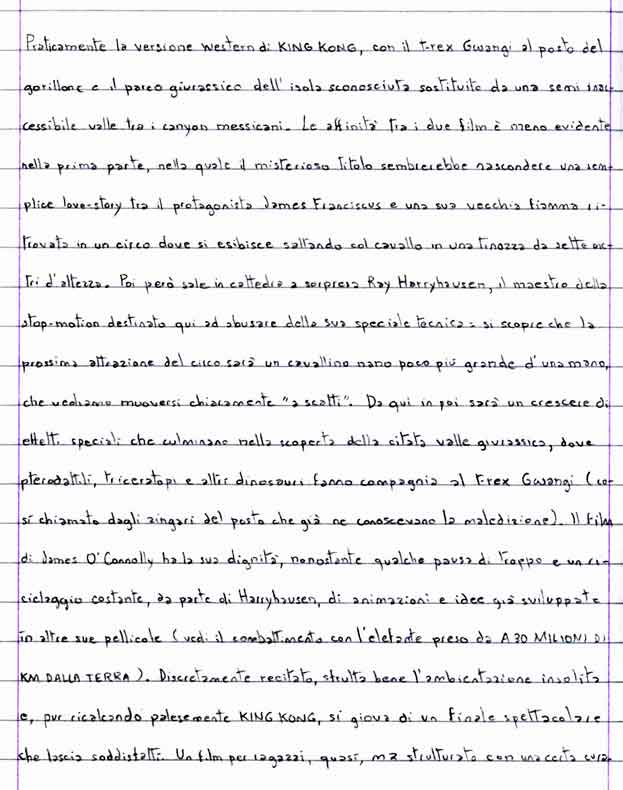 Praticamente la versione western di KING KONG, con il t-rex Gwangi al posto del
gorillone e il parco giurassico dell'isola sconosciuta sostituito da una semi inac-
cessibile valle tra i canyon messicani. Le affinità tra i due film è meno evidente
nella prima parte, nella quale il misterioso titolo sembrerebbe nascondere una sem-
plice love-story tra il protagonista James Franciscus e una sua vecchia fiamma ri-
trovata in un circo dove si esibisce saltando col cavallo in una tinozza da sette me-
tri d'altezza. Poi però sale in cattedra a sorpresa Ray Harryhausen, il maestro della
stop-motion destinato qui ad abusare della sua speciale tecnica: si scopre che la
prossima attrazione del circo sarà un cavallino nano poco più grande d'una mano,
che vediamo muoversi chiaramente "a scatti". Da qui in poi sarà un crescere di
effetti speciali che culminano nella scoperta della citata valle giurassica, dove
pterodattili, triceratopi e altri dinosauri fanno compagnia al t-rex Gwangi (co-
sì chiamato dagli zingari del posto che già ne conoscevano la maledizione). Il film
di James O'Connolly ha la sua dignità, nonostante qualche pausa di troppo e un ri-
ciclaggio costante, da parte di Harryhausen, di animazioni e idee già sviluppate
in altre sue pellicole (vedi il combattimento con l'elefante preso da A 30 MILIONI DI
KM DALLA TERRA). Discretamente recitato, sfrutta bene l'ambientazione insolita
e, pur ricalcando palesemente KING KONG, si giova di un finale spettacolare
che lascia soddisfatti. Un film per ragazzi, quasi, ma strutturato con una certa cura.